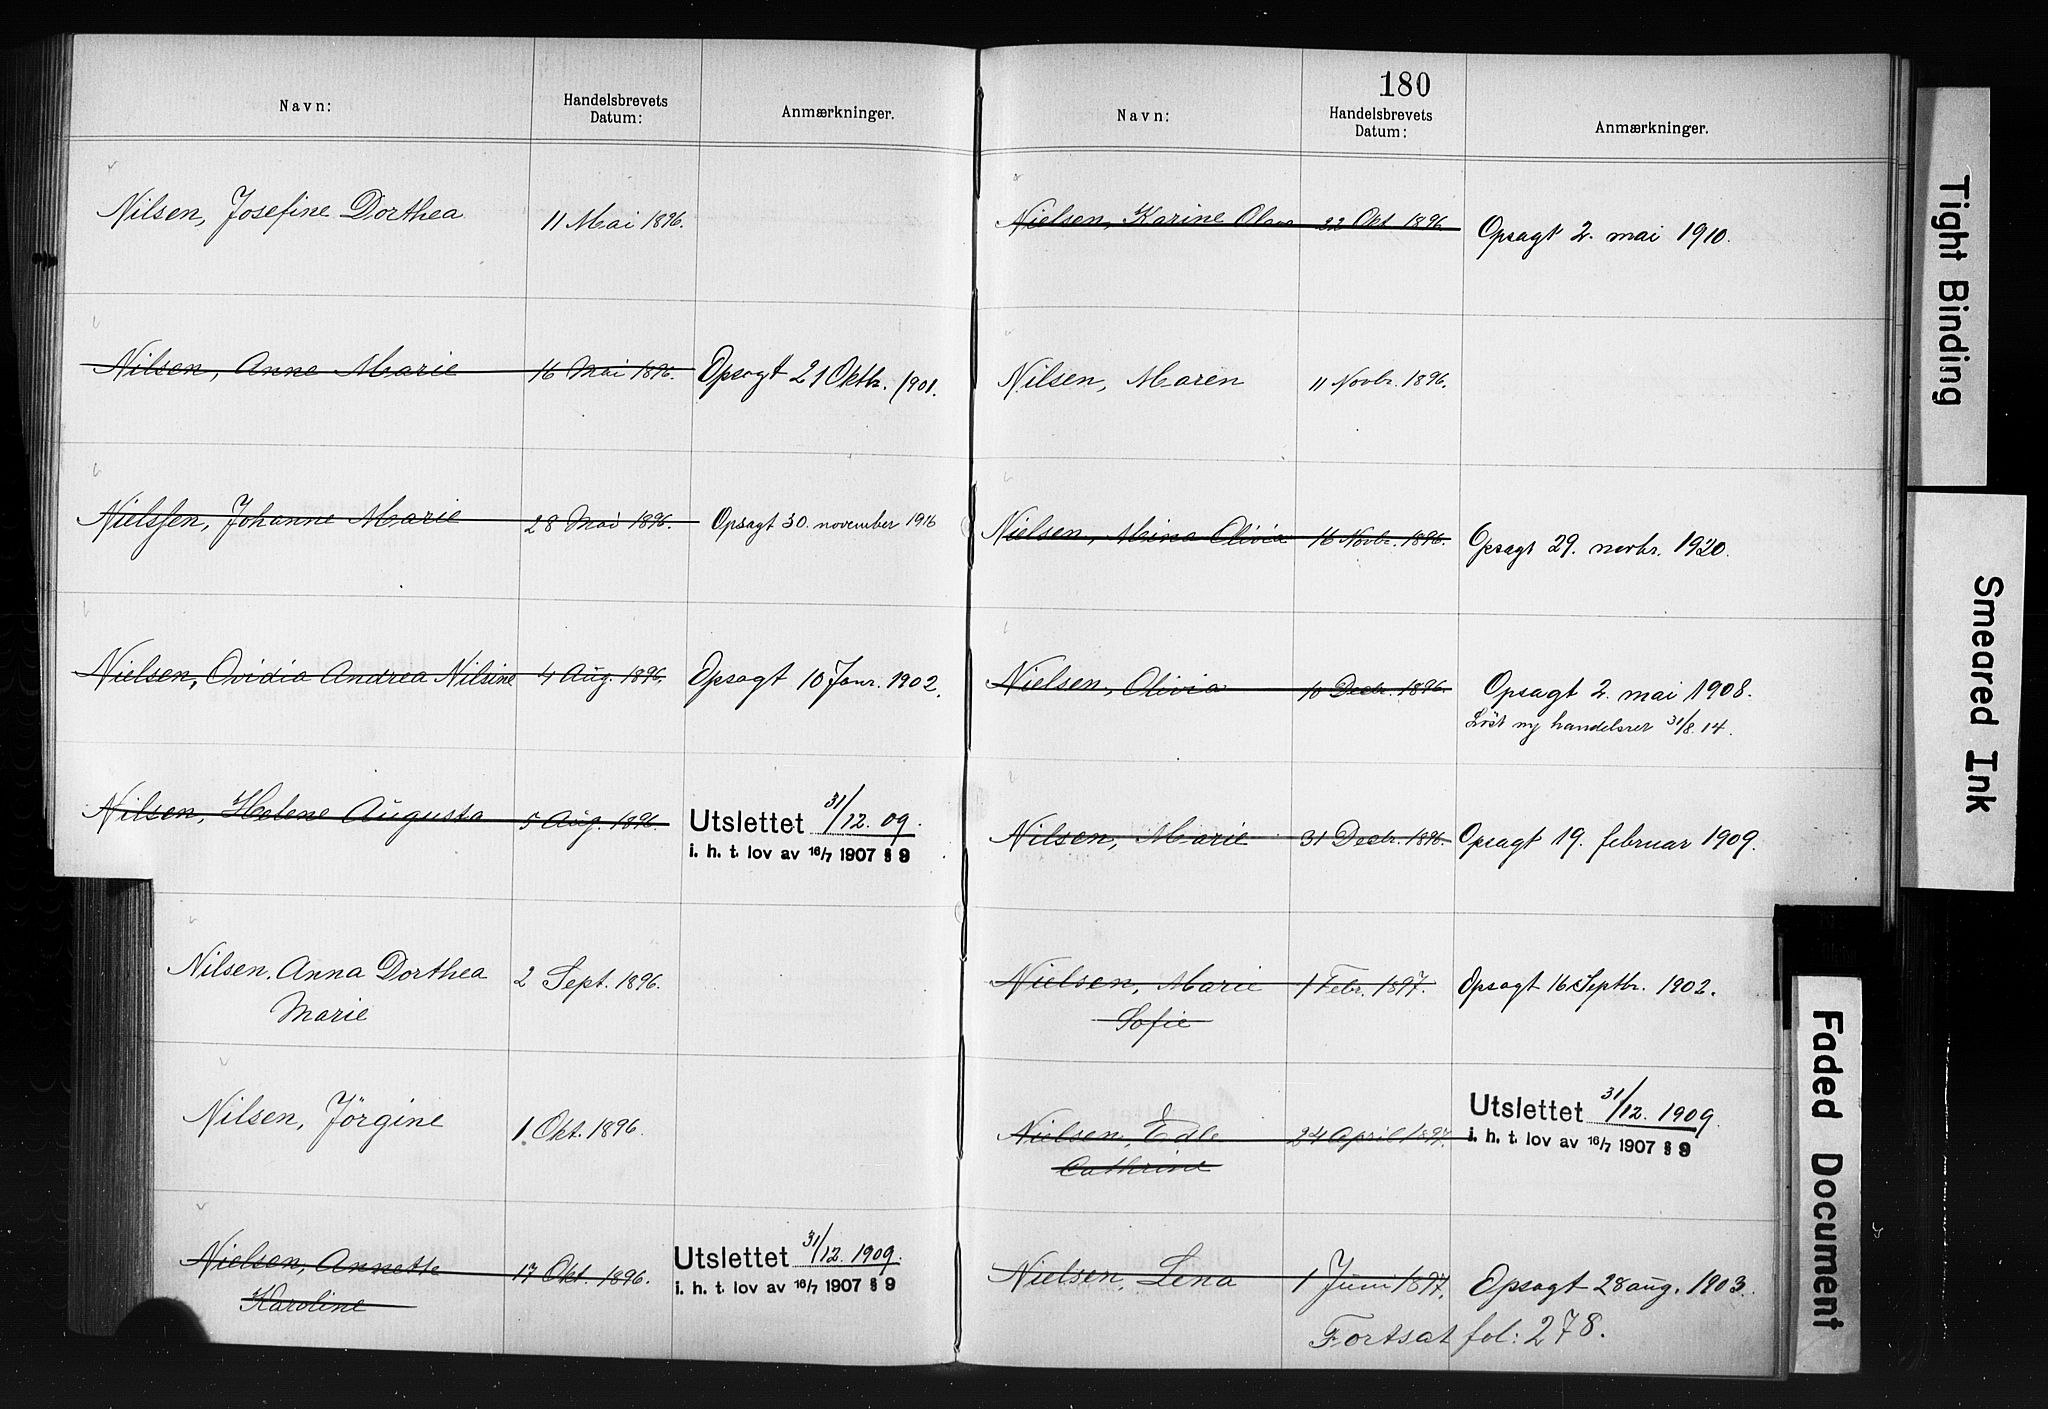 Navn: Handelsbrevets Datum: Anmærkninger.
Nilsen, Josefine Dorthea 11 Mai 1896.
Nilsen, Anne Marie 16 Mai 1896. Opsagt 21 Oktbr. 1901.
Nielsen, Johanne Marie 28 Mai 1896. Opsagt 30. november 1916
Nielsen, Ovidia Andrea Nilsine 4 Aug. 1896. Opsagt 10 Janr. 1902.
Nilsen, Helene Augusta 5 Aug. 1896. Utslettet 31/12. 09.
i. h. t. lov av 16/7 1907 § 9
Nilsen, Anna Dorthea 2 Sept. 1896.
Marie
Nilsen, Jörgine 1 Okt. 1896.
Nielsen, Annette 17 Okt. 1896. Utslettet 31/12. 1909.
Karoline i. h. t. lov av 16/7 1907 § 9
180
Navn: Handelsbrevets Datum: Anmærkninger.
Nielsen, Karine 22 Okt 1896. Opsagt 2. mai 1910.
Nilsen, Maren 11 Novbr. 1896.
Nielsen, Mina Olivia 16 Novbr. 1896. Opsagt 29. novbr. 1920.
Nielsen, Olivia 10 Decbr. 1896. Opsagt 2. mai 1908.
Löst ny handelsret 31/8. 14.
Nilsen, Marie 31 Decbr. 1896. Opsagt 19. februar 1909.
Nielsen, Marie 1 Febr. 1897. Opsagt 16 Septbr. 1902.
Sofie
Nielsen, Edle 24 April 1897. Utslettet 31/12. 1909.
Cathrine i. h. t. lov av 16/7 1907 § 9
Nielsen, Lena 1 Juni 1897. Opsagt 28 aug. 1903.
Fortsat fol: 278.
Tight Binding
Smeared Ink
Faded Document